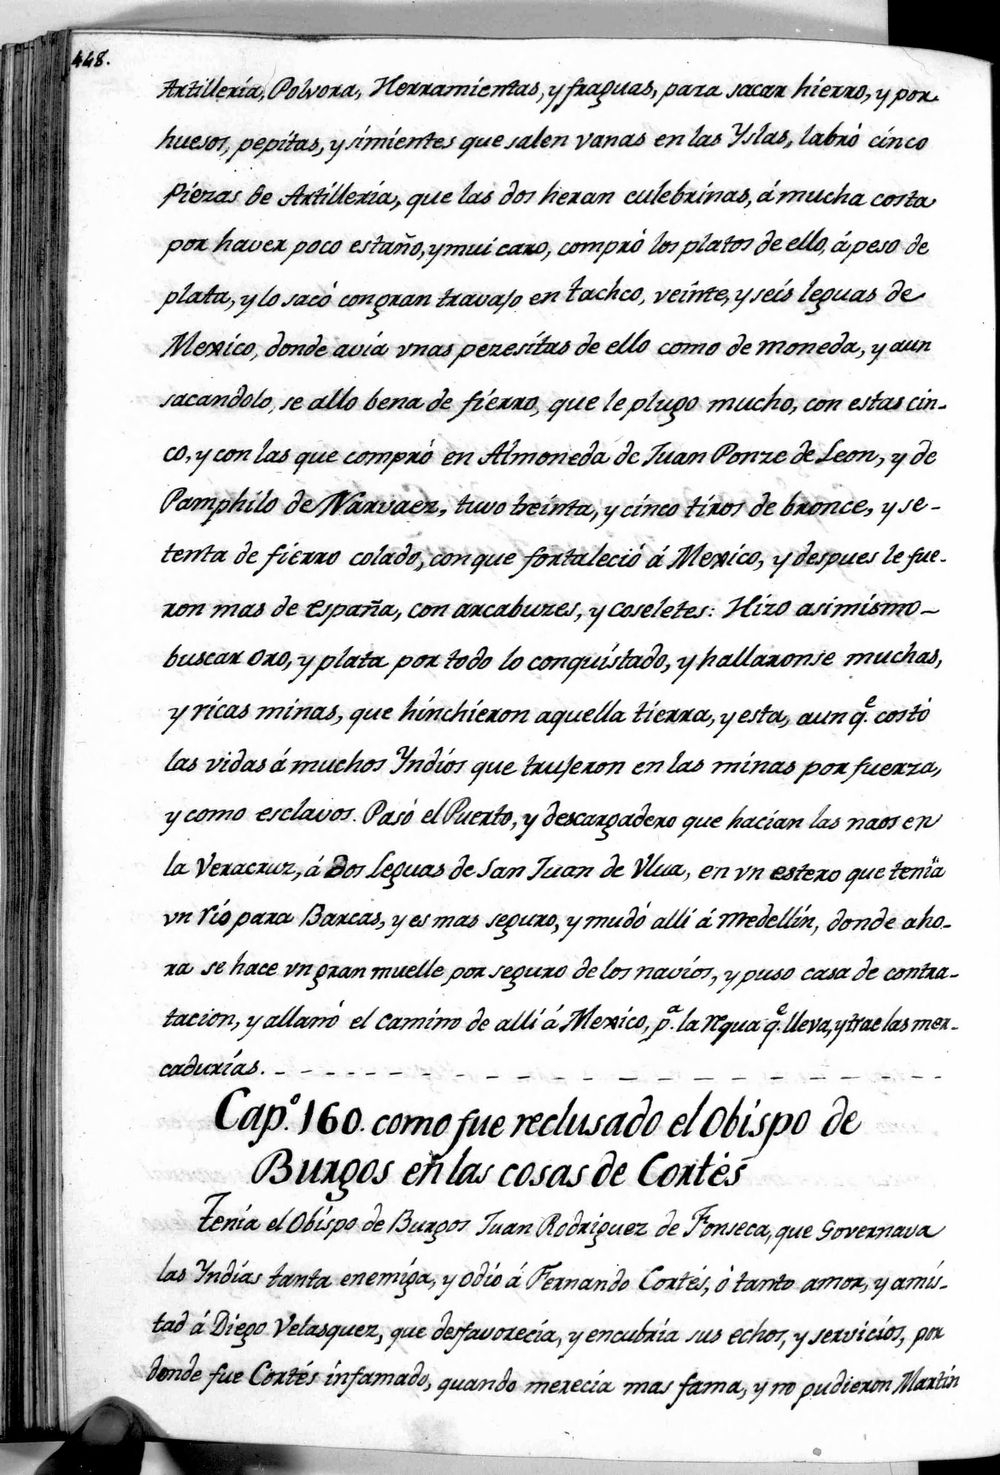 448.
Artilleria, Polvora, Herramientas, y fraguas, para sacar hierro, y por
huesos, pepitas, y simientes que salen vanas en las Yslas, labró cinco
Piezas de Artilleria, que las dos heran culebrinas, á mucha costa
por haver poco estaño, y mui caro, compró los platos de ello, á peso de
plata, y lo sacó con gran travajo en tachco, veinte, y seis leguas de
Mexico, donde aviá vnas pezesitas de ello como de moneda, y aun
sacandolo, se allo bena de fierro, que le plugo mucho, con estas cin-
co, y con las que compró en Almoneda de Juan Ponze de Leon, y de
Pamphilo de Narvaez, tuvo treinta, y cinco tiros de bronce, y se-
tenta de fierro colado, con que fortaleció á Mexico, y despues le fue-
ron mas de españa, con arcabuzes, y coseletes: Hizo asimismo-
buscar oro, y plata por todo lo conquistado, y hallaronse muchas,
y ricas minas, que hinchieron aquella tierra, y esta, aun q.e costó
las vidas á muchos Yndios que trujeron en las minas por fuerza,
y como esclavos. Pasó el Puerto, y descargadero que hacian las naos en
la Veracruz, á Dos Leguas de San Juan de Vlua, en vn estero que tenia
vn rio para Barcas, y es mas seguro, y mudó alli á medellin, donde aho-
ra se hace vn gran muelle por seguro de los navios, y puso casa de contra-
tacion, y allanó el camino de alli á Mexico, p.a la requa q.e lleva, y trae las mer-
cadurias. - - - - - - - - - - - - - - - - - -
Cap.o 160. como fue reclusado el Obispo de
Burgos en las cosas de Cortés
Tenia el Obispo de Burgos Juan Rodriguez de Fonseca, que Governava
las Yndias tanta enemiga, y odio á Fernando Cortés, ò tanto amor, y amis-
tad á Diego Velasquez, que desfavorecia, y encubria sus echos, y servicios, por
donde fue Cortés infamado, quando merecia mas fama, y no pudieron Martin